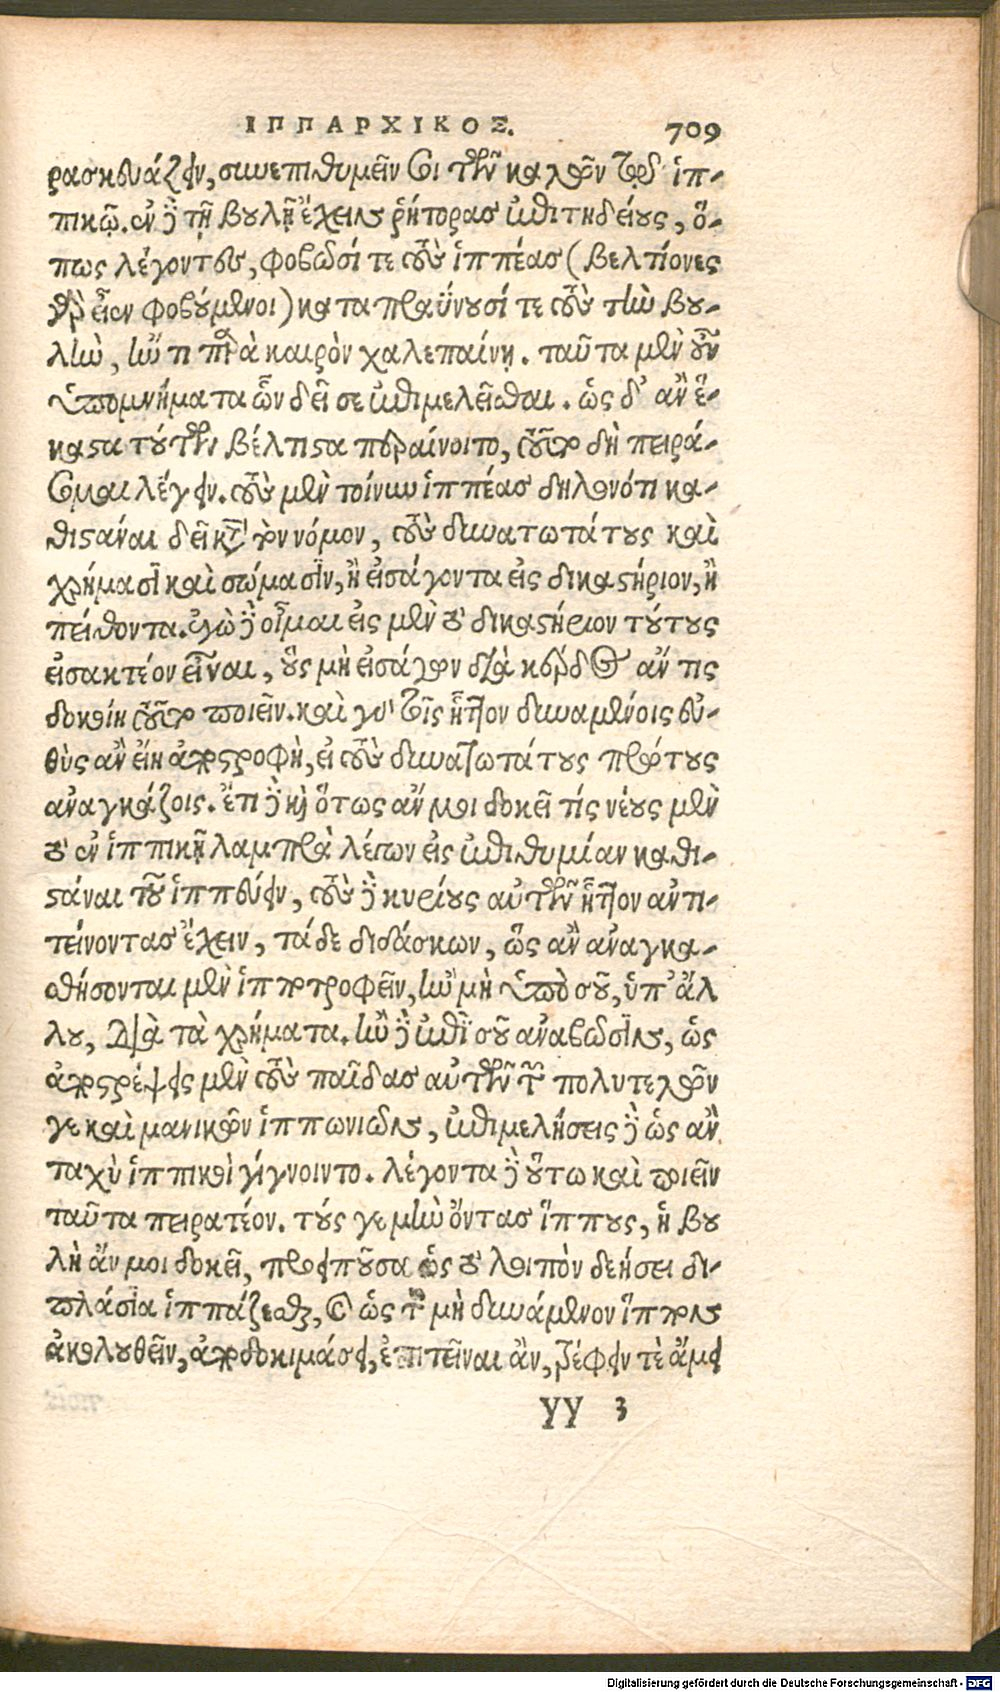 ΙΠΠΑΡΧΙΚΟΣ. 709
ρασκευάζειν, συνεπιθυμεῖν σοι τῶν καλῶν τῷ ἱπ-
πικῷ. ἐν δὲ τῇ βουλῇ ἔχειν ῥήτορας ἐπιτηδείους, ὅ-
πως λέγοντες, φοβῶσί τε τοὺς ἱππέας (βελτίονες
γὰρ εἶεν φοβούμενοι) καταπραΰνουσί τε τοὺς τὴν βου-
λὴν, ἤν τι παρὰ καιρὸν χαλεπαίνῃ. ταῦτα μὲν οὖν
ὑπομνήματα ὧν δεῖ σε ἐπιμελεῖσθαι. ὡς δ' ἂν ἕ-
καστα τούτων βέλτιστα περαίνοιτο, τοῦτο δὴ πειρά-
σομαι λέγειν. τοὺς μὲν τοίνυν ἱππέας δηλονότι κα-
θιστάναι δεῖ κατὰ τὸν νόμον, τοὺς δυνατωτάτους καὶ
χρήμασι καὶ σώμασιν, ἢ εἰσάγοντα εἰς δικαστήριον, ἢ
πείθοντα. ἐγὼ δὲ οἶμαι εἰς μὲν τὸ δικαστήριον τούτους
εἰσακτέον εἶναι, οὓς μὴ εἰσάγων διὰ κέρδος ἄν τις
δοκοίη τοῦτο ποιεῖν. καὶ γὰρ τοῖς ἧττον δυναμένοις εὐ-
θὺς ἂν εἴη ἀποστροφὴ, εἰ τοὺς δυνατωτάτους πρώτους
ἀναγκάζοις. ἔτι δὲ καὶ ὅτως ἄν μοι δοκεῖ τίς νέους μὲν
τὸ ἐν ἱππικῇ λαμπρὰ λέγων εἰς ἐπιθυμίαν καθι-
στάναι τοῦ ἱππεύειν, τοὺς δὲ κυρίους αὐτῶν ἧττον ἀντι-
τείνοντας ἔχειν, τάδε διδάσκων, ὡς ἂν ἀναγκα-
σθήσονται μὲν ἱπποτροφεῖν, ἢν μὴ ὑπὸ σοῦ, ὑπ' ἄλ
λου, διὰ τὰ χρήματα. ἢν δὲ ἐπὶ σοῦ ἀναβῶσιν, ὡς
ἀποστρέψεις μὲν τοὺς παῖδας αὐτῶν τῶν πολυτελῶν
γε καὶ μανικῶν ἱππωνιῶν, ἐπιμελήσεις δὲ ὡς ἂν
ταχὺ ἱππικοὶ γίγνοιντο. λέγοντα δὲ οὕτω καὶ ποιεῖν
ταῦτα πειρατέον. τούς γε μὴν ὄντας ἵππους, ἡ βου
λὴ ἄν μοι δοκεῖ, προειποῦσα ὡς τὸ λοιπὸν δεήσει δι-
πλάσια ἱππάζεσθαι, καὶ ὡς τὸν μὴ δυνάμενον ἵππον
ἀκολουθεῖν, ἀποδοκιμάσει, ἐπιτεῖναι ἂν, τρέφειν τὲ ἄμει
YY 3